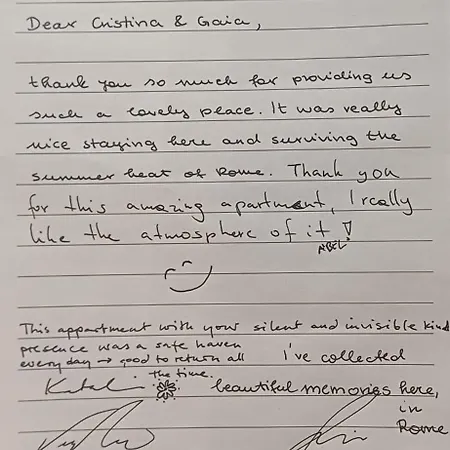 Dear Cristina & Gaia,
thank you so much for providing us
such a lovely place. It was really
nice staying here and surviving the
summer heat of Rome. Thank you
for this amazing apartment, I really
like the atmosphere of it!
ABEL
This appartment with your silent and invisible kind
presence was a safe haven
everyday → good to return all
the time.
I've collected
beautiful memories here,
in
Rome